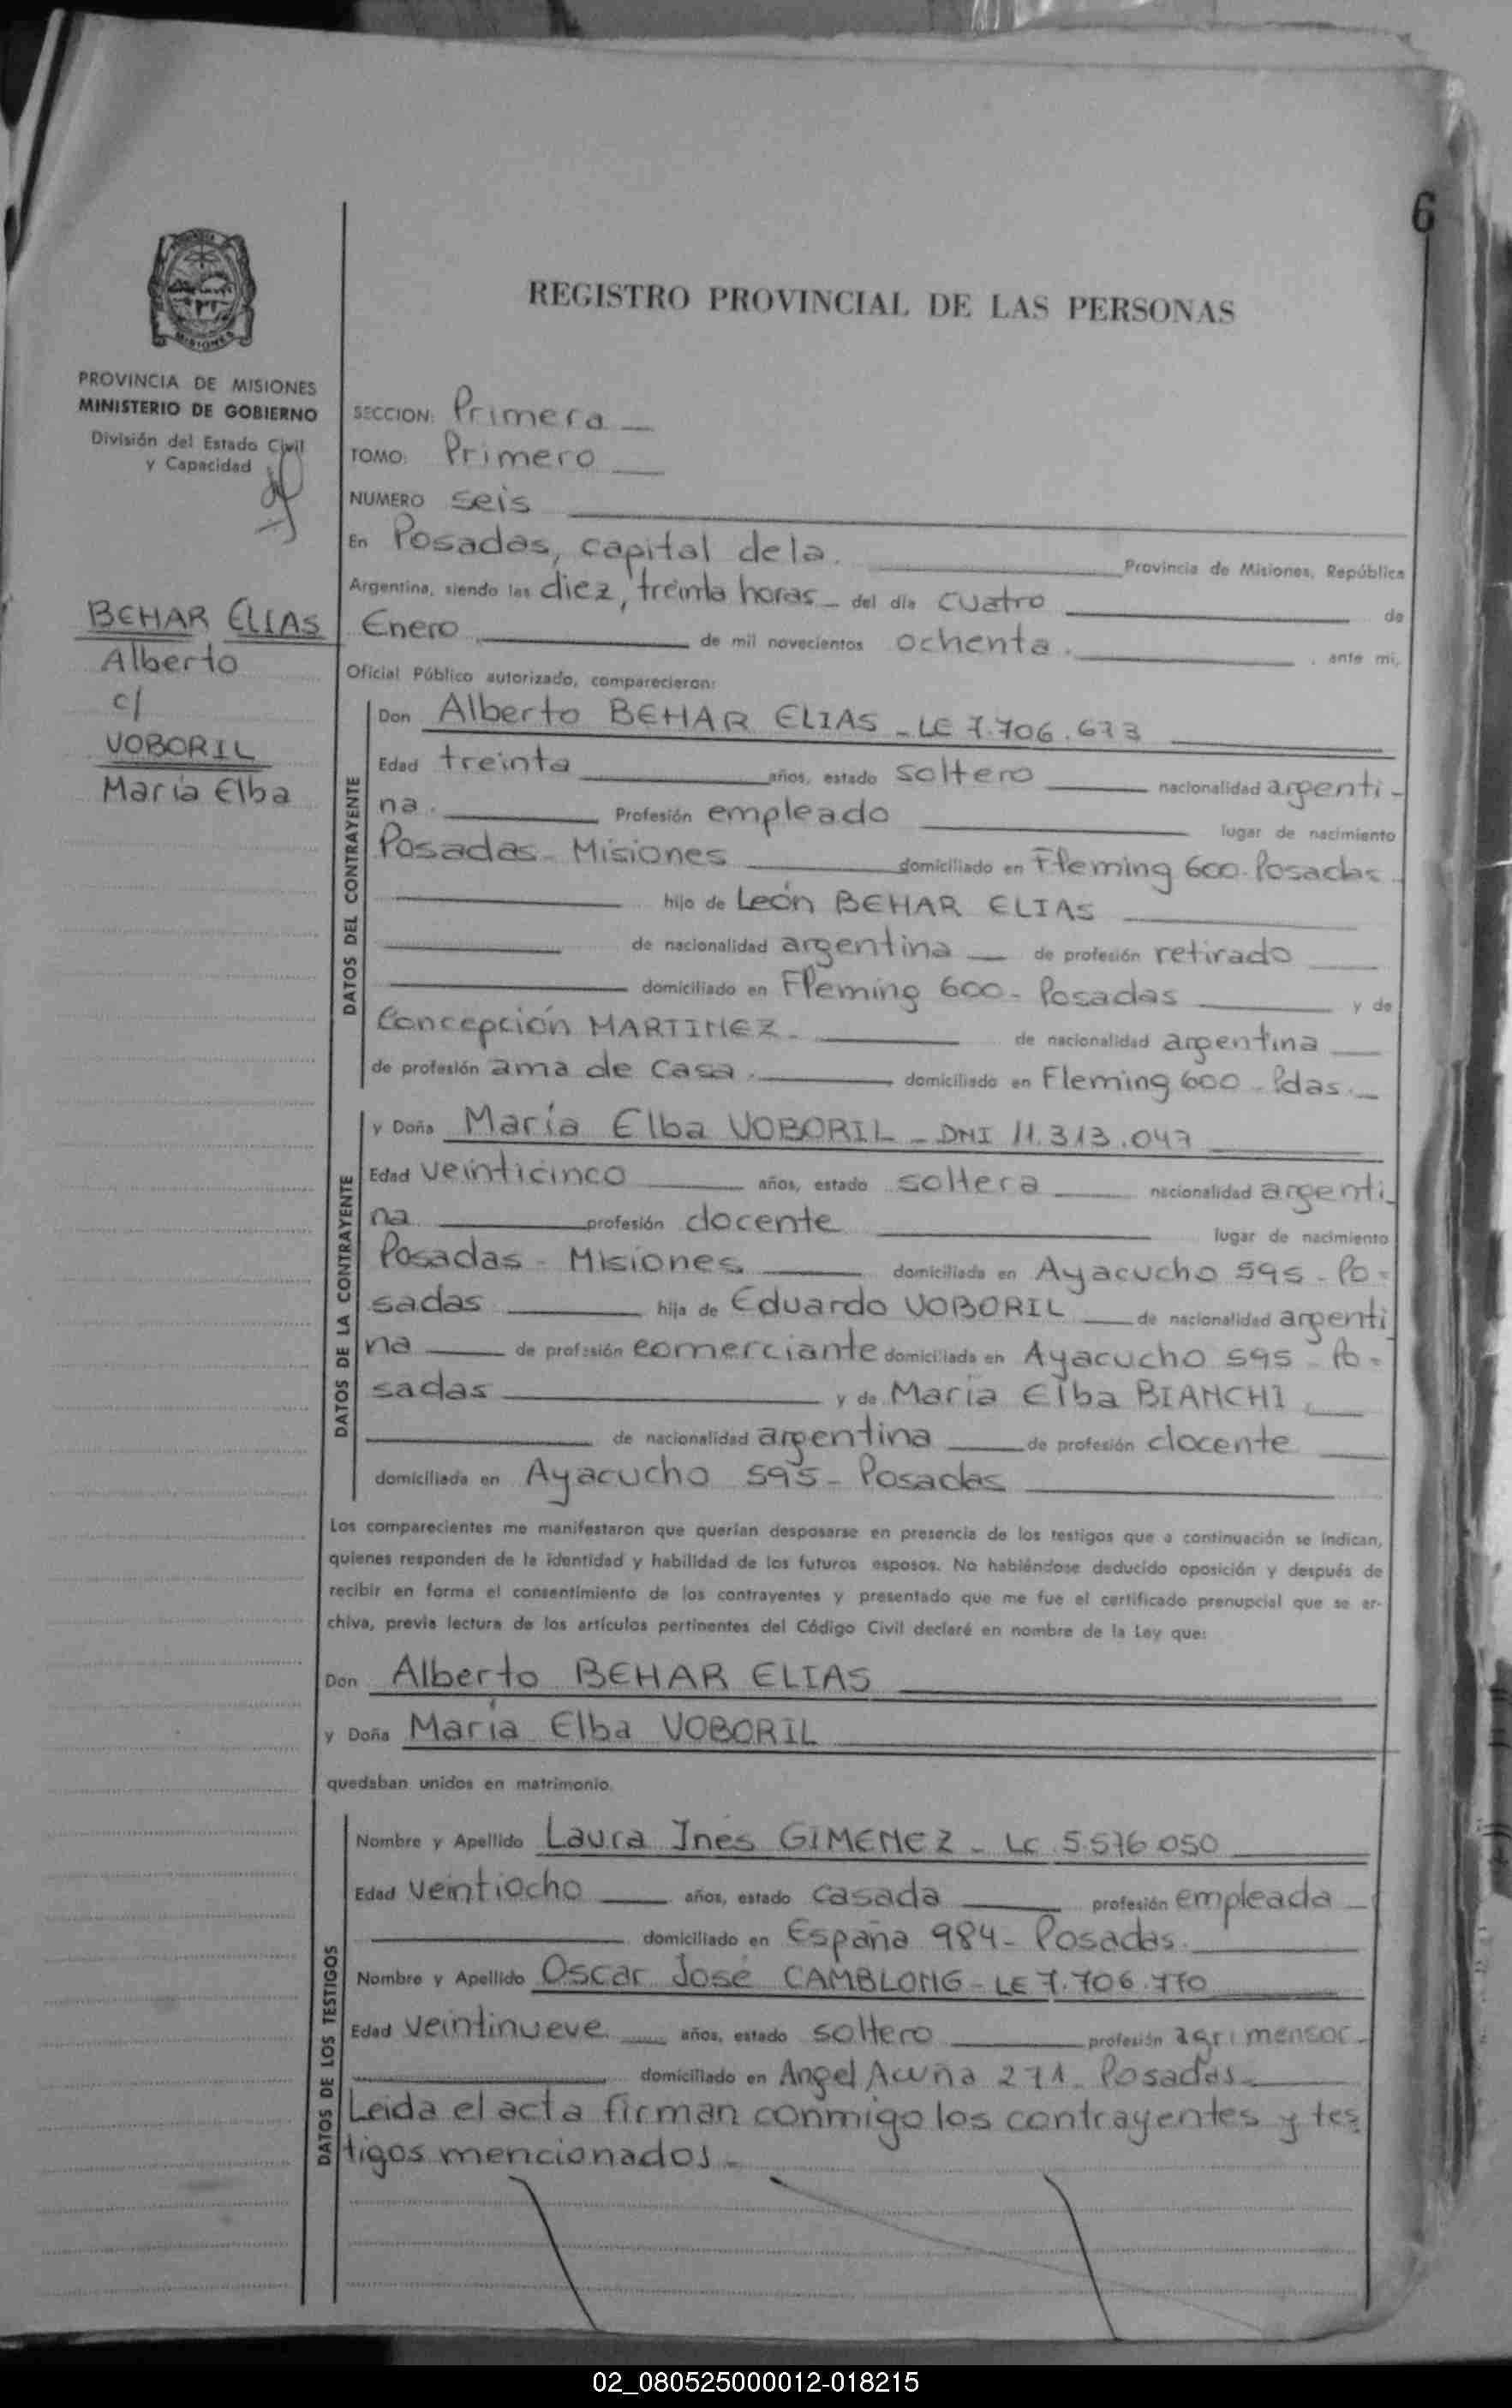 6
REGISTRO PROVINCIAL DE LAS PERSONAS
MISIONES
PROVINCIA DE MISIONES
MINISTERIO DE GOBIERNO
División del Estado Civil
y Capacidad
BEHAR ELIAS
Alberto
c/
VOBORIL
María Elba
SECCION: Primera
TOMO: Primero
NUMERO seis
En Posadas, capital de la Provincia de Misiones, República
Argentina, siendo las diez, treinta horas del día cuatro de
Enero de mil novecientos ochenta. , ante mi,
Oficial Público autorizado, comparecieron:
DATOS DEL CONTRAYENTE
Don Alberto BEHAR ELIAS - LE 7.706.673
Edad treinta años, estado soltero nacionalidad argenti-
na. Profesión empleado lugar de nacimiento
Posadas - Misiones domiciliado en Fleming 600 - Posadas
hijo de León BEHAR ELIAS
de nacionalidad argentina de profesión retirado
domiciliado en Fleming 600 - Posadas y de
Concepción MARTINEZ - de nacionalidad argentina
de profesión ama de casa. domiciliado en Fleming 600 - Pdas.
DATOS DE LA CONTRAYENTE
y Doña María Elba VOBORIL - DNI 11.313.047
Edad veinticinco años, estado soltera nacionalidad argenti-
na profesión docente lugar de nacimiento
Posadas - Misiones domiciliada en Ayacucho 595 - Po-
sadas hija de Eduardo VOBORIL de nacionalidad argenti
na de profesión comerciante domiciliada en Ayacucho 595 - Po-
sadas y de María Elba BIANCHI
de nacionalidad argentina de profesión docente
domiciliada en Ayacucho 595 - Posadas
Los comparecientes me manifestaron que querían desposarse en presencia de los testigos que a continuación se indican,
quienes responden de la identidad y habilidad de los futuros esposos. No habiéndose deducido oposición y después de
recibir en forma el consentimiento de los contrayentes y presentado que me fue el certificado prenupcial que se ar-
chiva, previa lectura de los artículos pertinentes del Código Civil declaré en nombre de la Ley que:
Don Alberto BEHAR ELIAS
y Doña María Elba VOBORIL
quedaban unidos en matrimonio.
DATOS DE LOS TESTIGOS
Nombre y Apellido Laura Inés GIMENEZ - LC 5.576.050
Edad veintiocho años, estado casada profesión empleada
domiciliado en España 984 - Posadas.
Nombre y Apellido Oscar José CAMBLONG - LE 7.706.770
Edad veintinueve años, estado soltero profesión agrimensor
domiciliado en Angel Acuña 271 - Posadas
Leída el acta firman conmigo los contrayentes y tes
tigos mencionados.
02_080525000012-018215